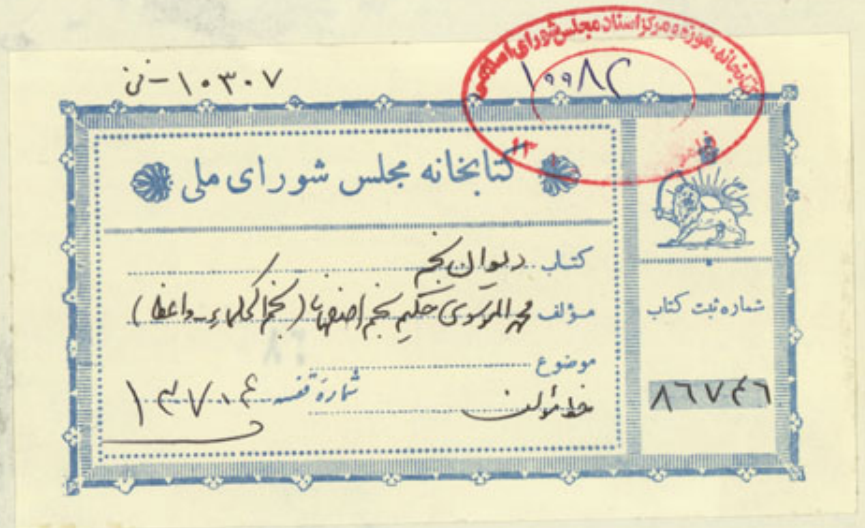 ۱۰۳۰۷-فن
کتابخانه، موزه و مرکز اسناد مجلس شورای اسلامی
۱۰۰۸۲
کتابخانه مجلس شورای ملی
کتاب دیوان نجم
مؤلف محمد الموسوی حکیم نجم اصفهانی (نجم الحکماء - واعظ)
موضوع
خط مؤلف
شمارۀ قفسه ۱۳۷۰۴
شماره ثبت کتاب
۸۶۷۴۶